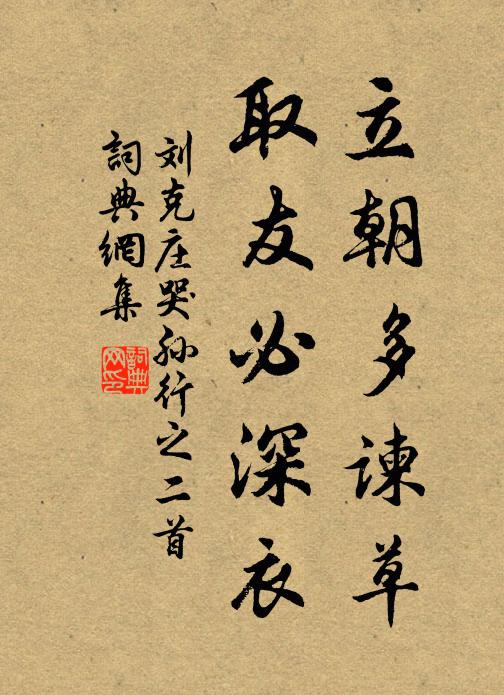 立朝多諫草
取友必深衣
刘克庄哭孙行之二首
詞典網集
詞典
网印